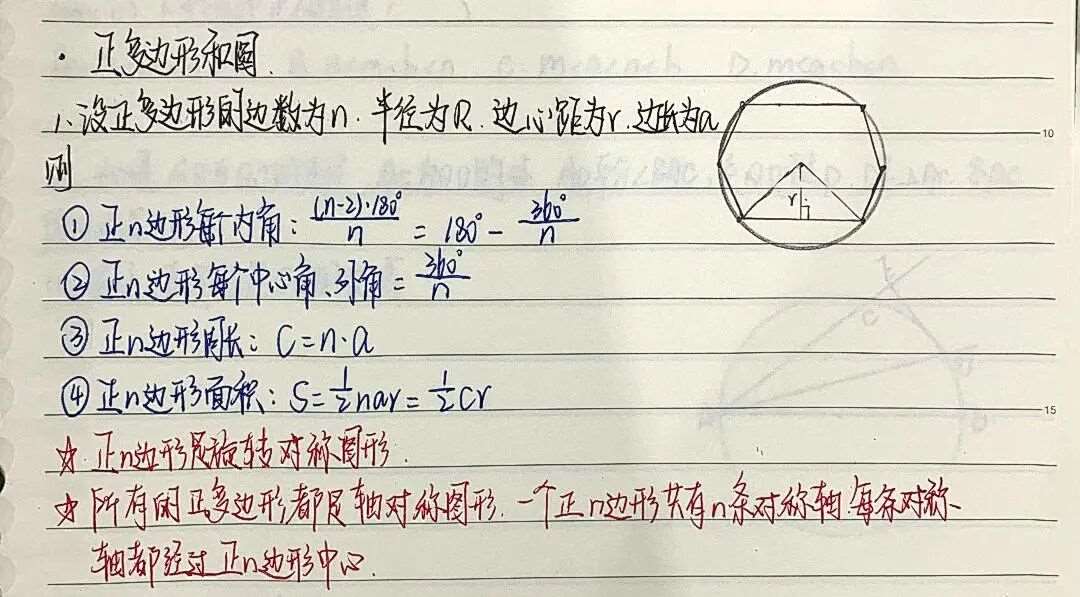 · 正多边形和圆.
1、设正多边形的边数为n.半径为R.边心距为r.边长为a
则
① 正n边形每个内角：(n-2)·180°/n = 180° - 360°/n
② 正n边形每个中心角、外角 = 360°/n
③ 正n边形周长：C=n·a
④ 正n边形面积：S=1/2nar=1/2Cr
☆ 正n边形是旋转对称图形.
☆ 所有的正多边形都是轴对称图形.一个正n边形共有n条对称轴.每条对称
轴都经过正n边形中心.
r
10
15